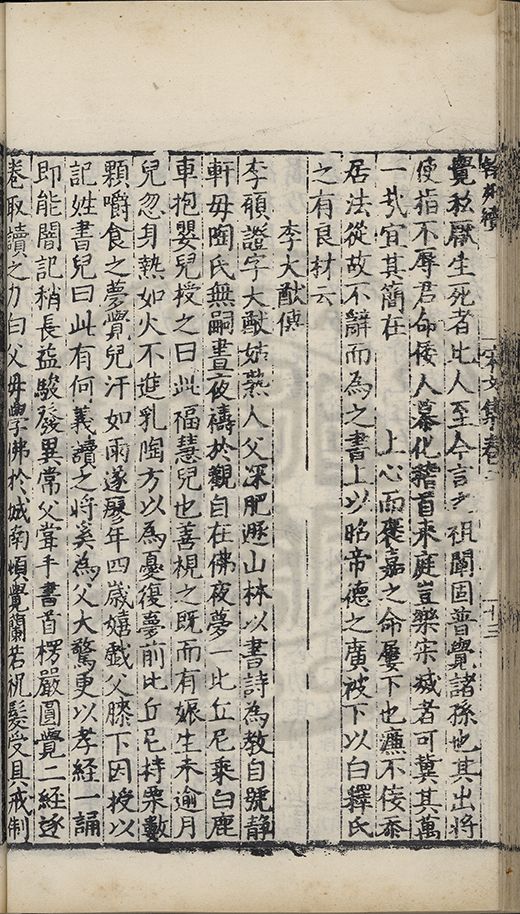 覺私厭生死者比人至今言之祖闡固普覺諸孫也其出將
使指不辱君命倭人慕化稽首來庭豈樂宋滅者可冀其萬
一哉宜其簡在　　上心而褒嘉之命屢下也濂不佞忝
居法從故不辭而為之書上以昭帝德之廣被下以白釋氏
之有良材云
李大猷傳
李頎證字大猷姑熟人父深肥遯山林以書詩為教自號靜
軒毋陶氏無嗣晝夜禱於觀自在佛夜夢一比丘尼乘白鹿
車抱嬰兒授之曰此福慧兒也善視之既而有娠生未逾月
兒忽身熱如火不進乳陶方以為憂復夢前比丘尼持栗數
顆嚼食之夢覺兒汗如雨遂瘳年四歲嬉戲父膝下因授以
記姓書兒曰此有何義讀之將奚為父大驚更以孝經一誦
即能闇記稍長益駿發異常父甞手書首楞嚴圓覺二經遂
卷取讀之力白父毋學佛於城南頃覺蘭若祝髮受具戒制
宋文集卷二
十三